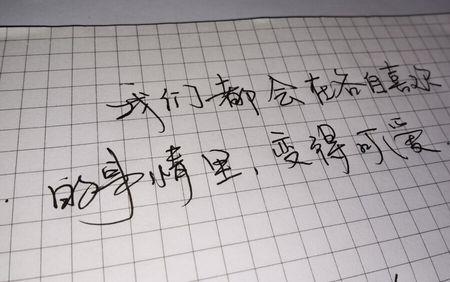 我们都会在各自喜欢
的事情里，变得可爱